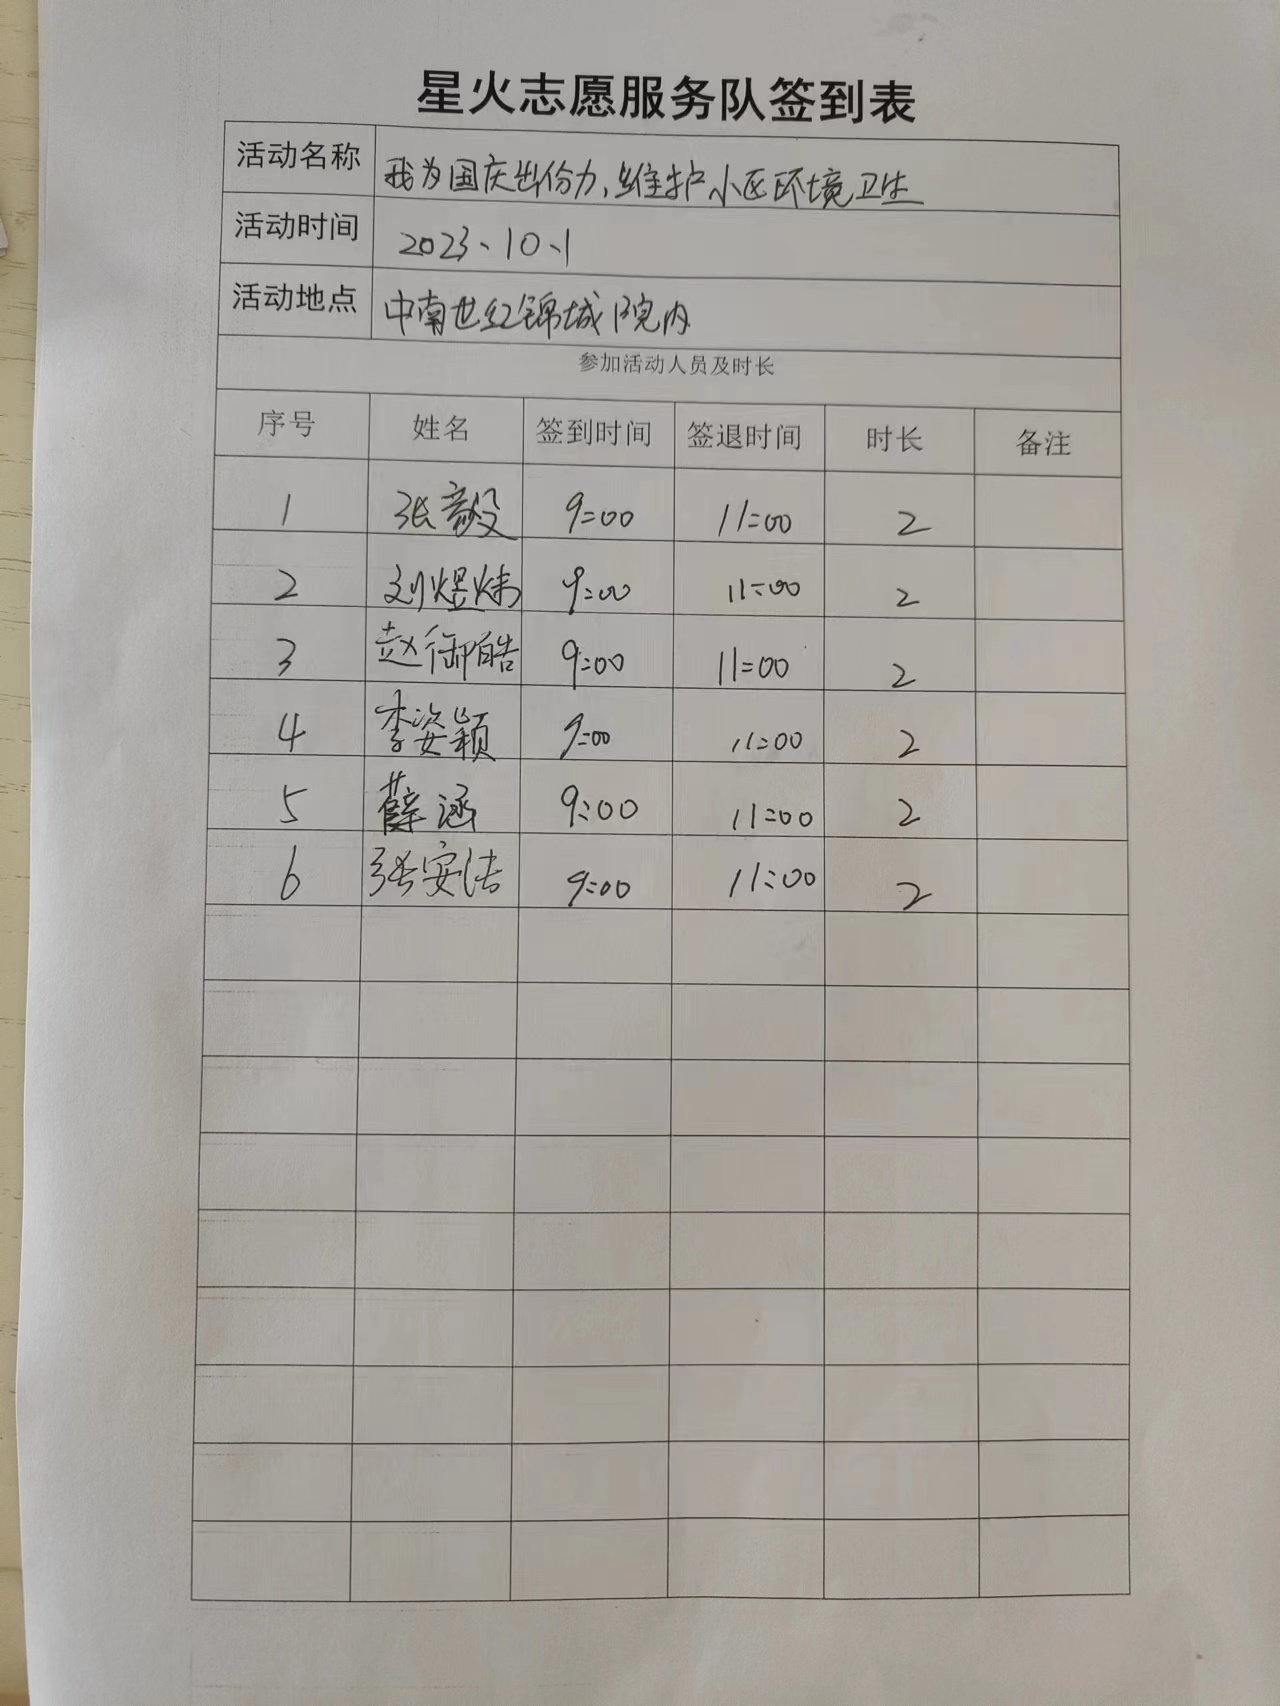 星火志愿服务队签到表
活动名称 我为国庆出份力、维护小区环境卫生
活动时间 2023、10、1
活动地点 中南世纪锦城院内
参加活动人员及时长
序号 姓名 签到时间 签退时间 时长 备注
1 张毅 9:00 11:00 2
2 刘煜炜 9:00 11:00 2
3 赵御皓 9:00 11:00 2
4 李姿颖 9:00 11:00 2
5 薛涵 9:00 11:00 2
6 张安洁 9:00 11:00 2